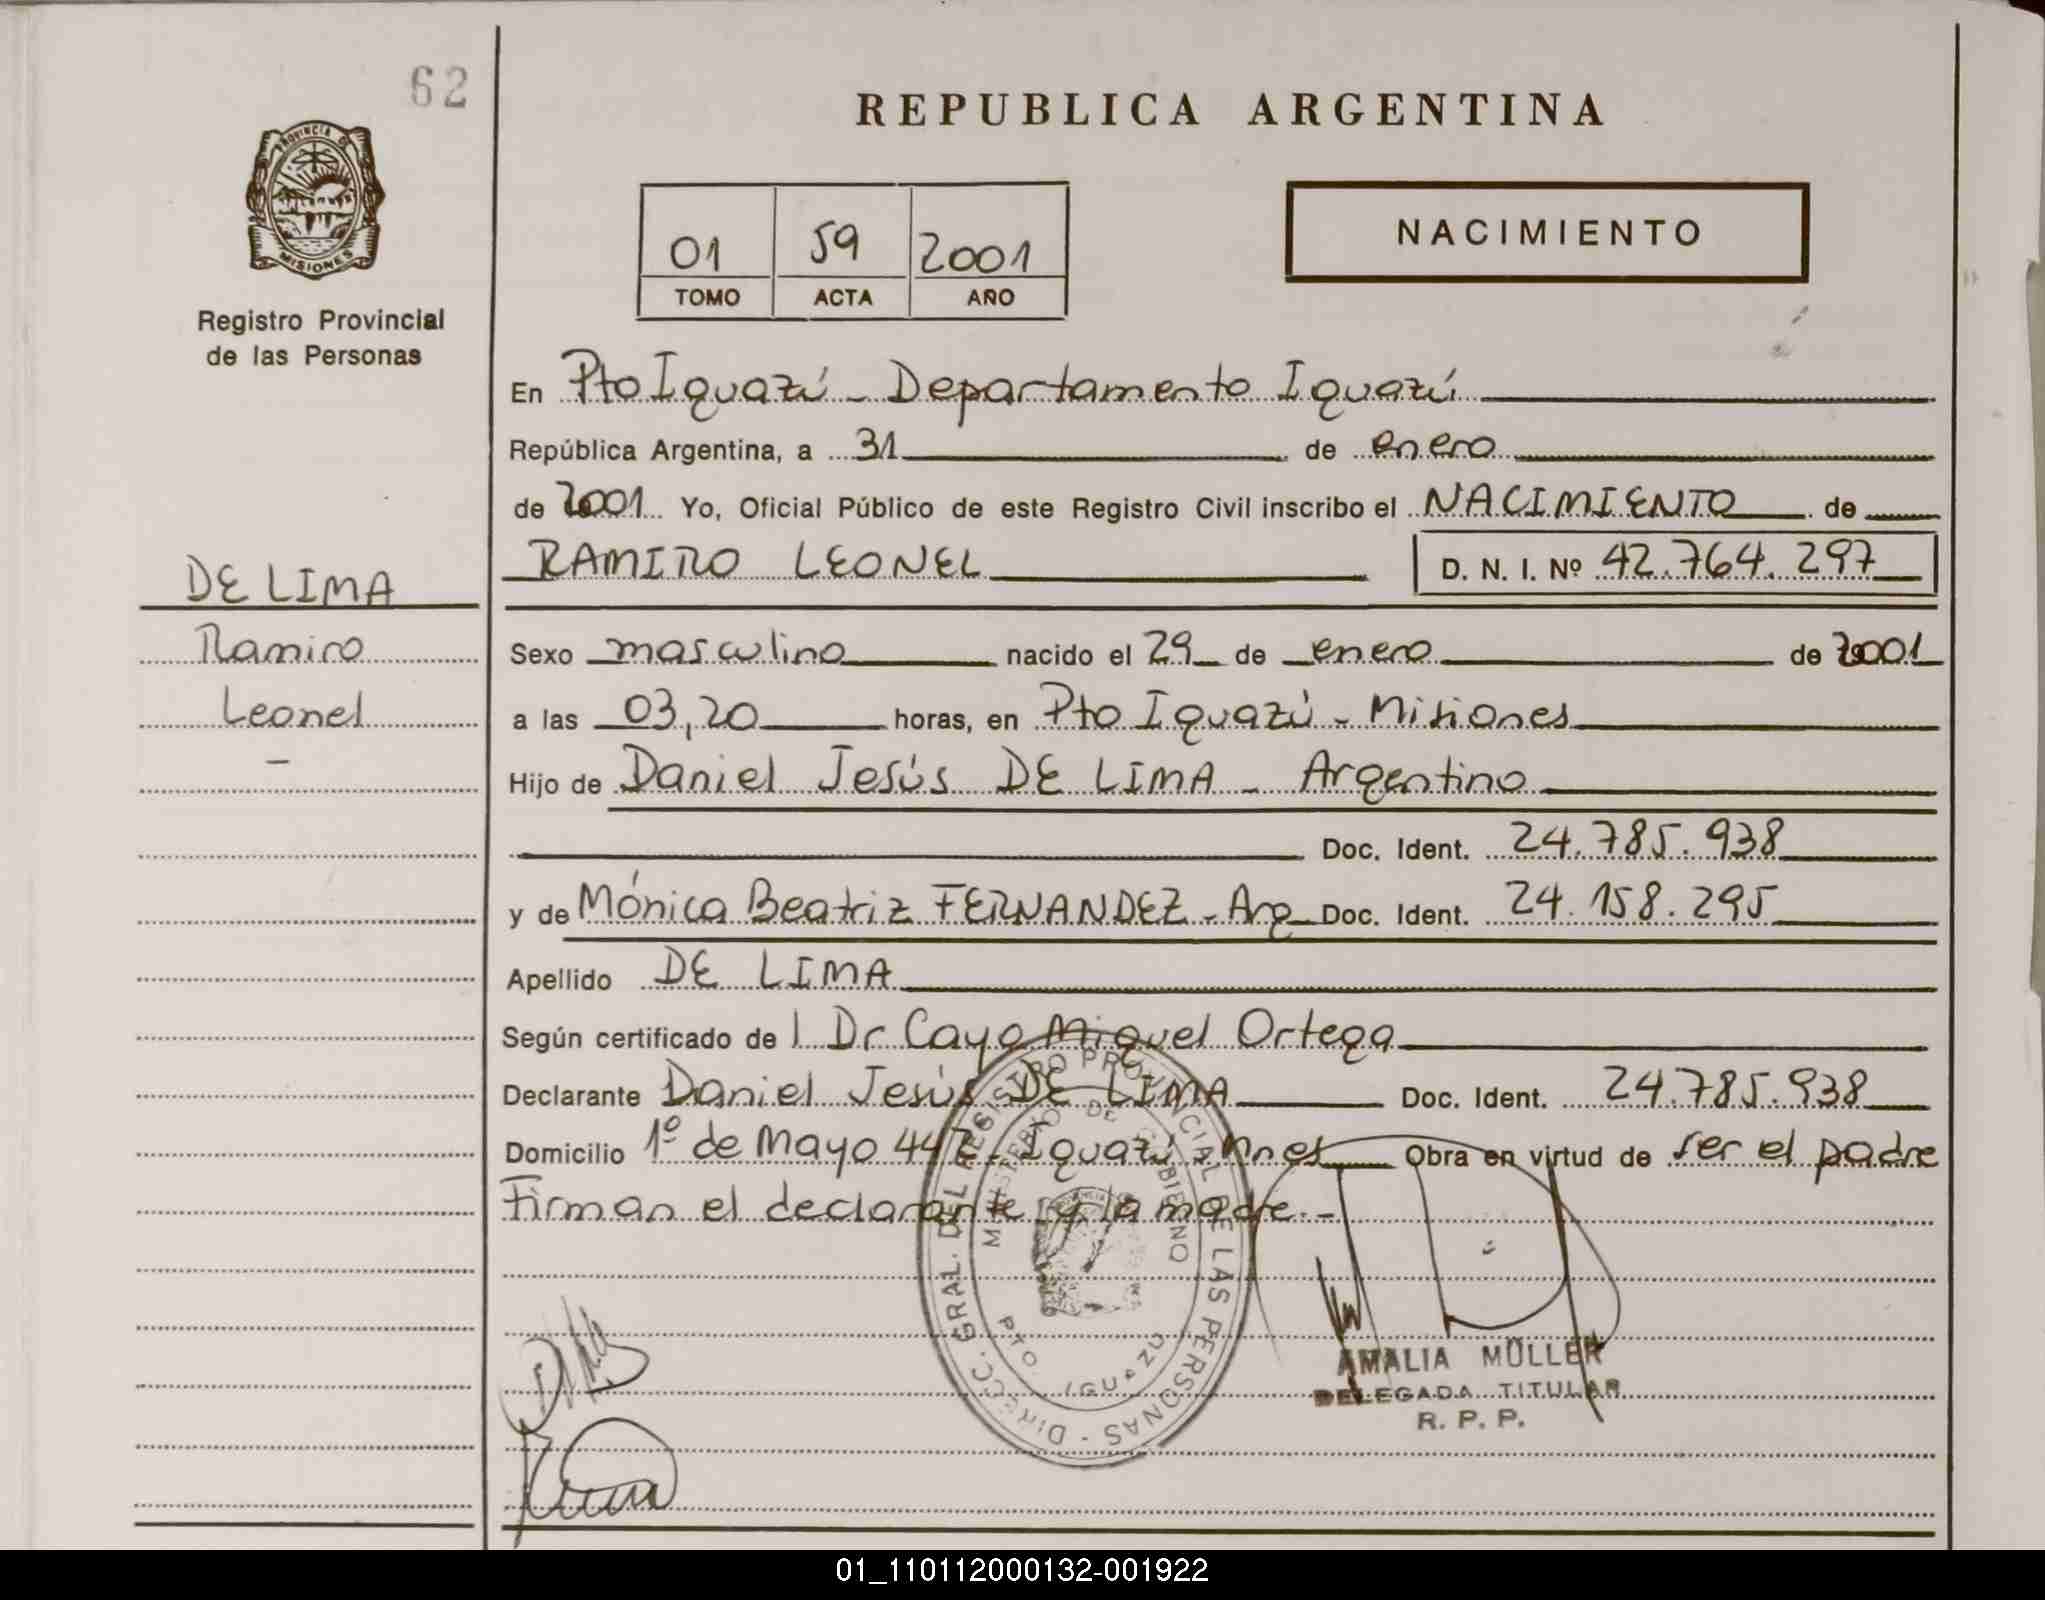 62
REPUBLICA ARGENTINA
PROVINCIA DE
MISIONES
Registro Provincial
de las Personas
01 59 2001
TOMO ACTA AÑO
NACIMIENTO
En Pto Iguazú - Departamento Iguazú
República Argentina, a 31 de enero
de 2001 Yo, Oficial Público de este Registro Civil inscribo el NACIMIENTO de
RAMIRO LEONEL D. N. I. Nº 42.764.297
DE LIMA
Ramiro
Leonel
-
Sexo masculino nacido el 29 de enero de 2001
a las 03,20 horas, en Pto Iguazú - Misiones
Hijo de Daniel Jesús DE LIMA - Argentino
Doc. Ident. 24.785.938
y de Mónica Beatriz FERNANDEZ - Arg Doc. Ident. 24.158.295
Apellido DE LIMA
Según certificado de l Dr Cayo Miguel Ortega
Declarante Daniel Jesús DE LIMA Doc. Ident. 24.785.938
Domicilio 1º de Mayo - Iguazú - Mnes Obra en virtud de ser el padre
Firman el declarante y la madre.-
DIRECC. GRAL. DEL REGISTRO PROVINCIAL DE LAS PERSONAS -
MINISTERIO DE GOBIERNO
PTO IGUAZU
AMALIA MÜLLER
DELEGADA TITULAR
R. P. P.
01_110112000132-001922